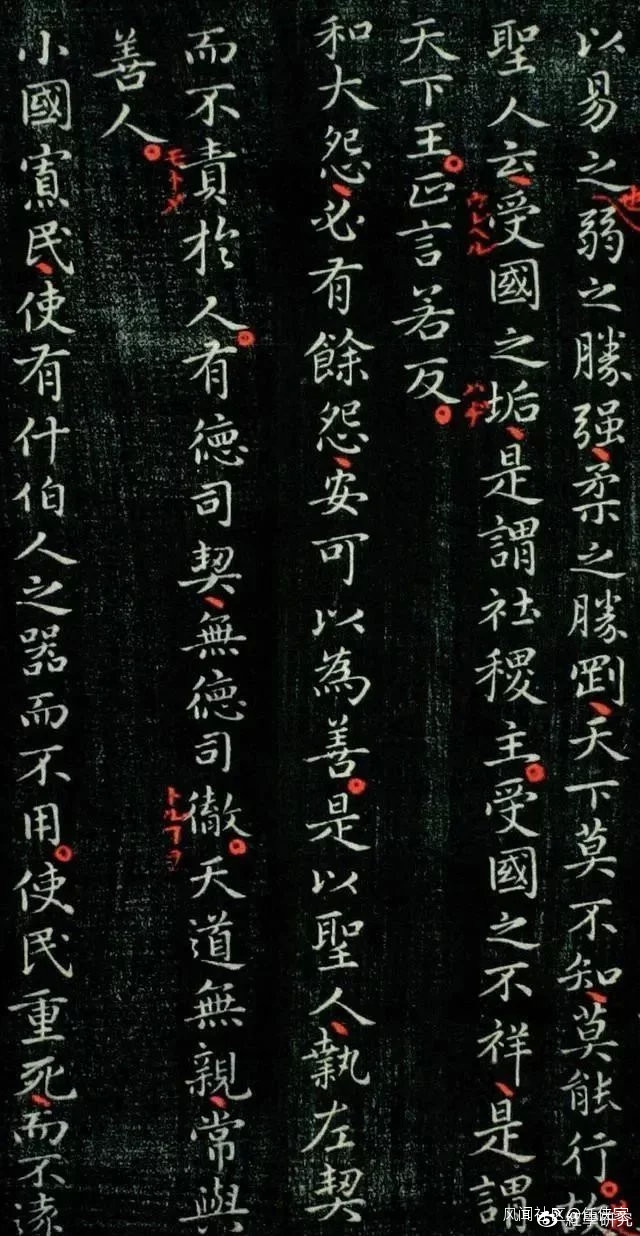 也
以易之弱之勝强、柔之勝剛、天下莫不知、莫能行。故
ウレヘル
ハヂ
聖人云、受國之垢、是謂社稷主。受國之不祥、是謂
天下王。正言若反。
和大怨、必有餘怨、安可以為善。是以聖人、執左契
モトメ
而不責於人。有德司契、無德司徹。天道無親、常與
善人。
小國寡民、使有什伯人之器而不用。使民重死、而不遠
风闻社区@